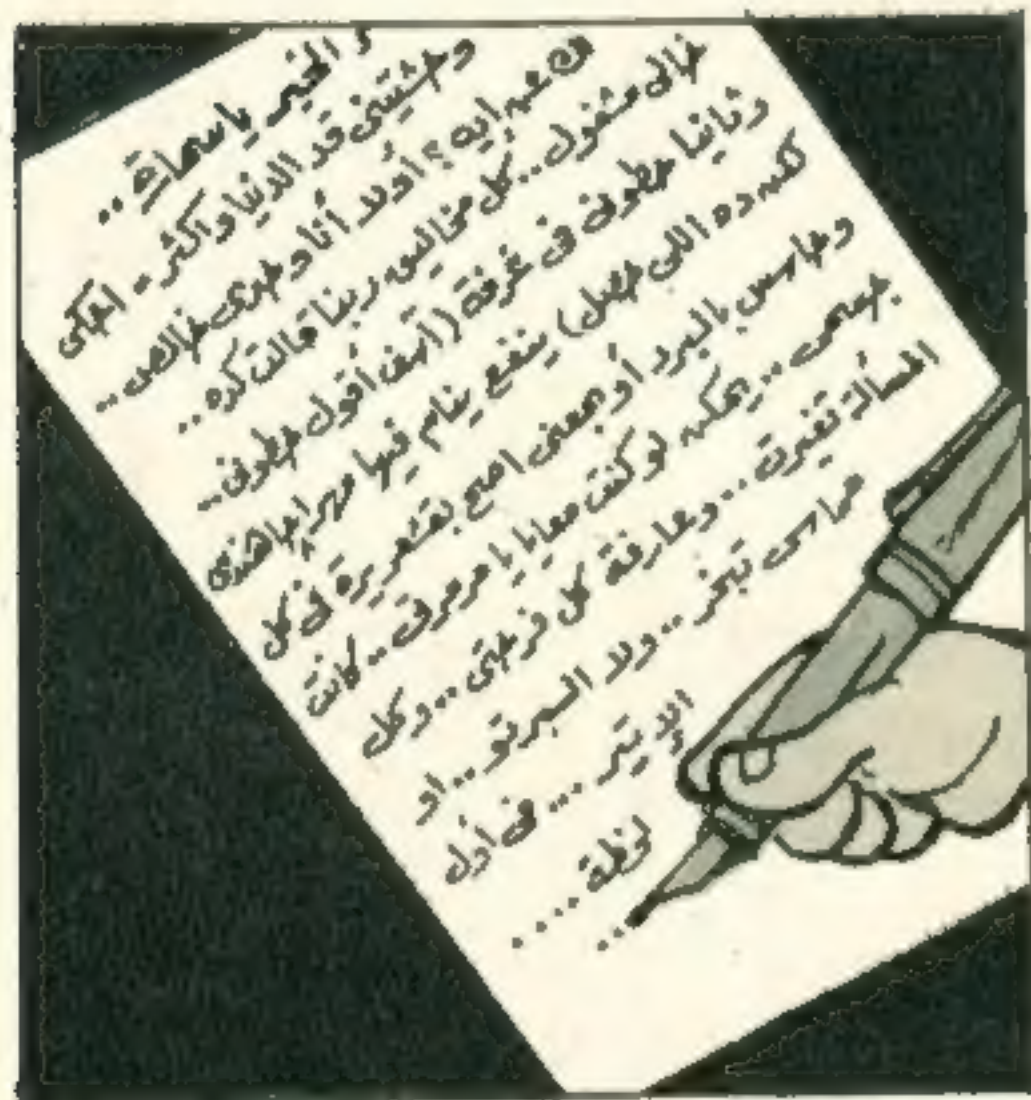 الخير يا سماح ..
وحشتينى قد الدنيا وأكثر .. احكى
لك عن إيه ؟ أولا أنا وحدى خالص ..
خالى مشغول .. كل مخاليق ربنا قالت كده ..
وثانيا حطونى فى غرفة ( آسف أقول حطونى ..
لكن ده اللى حصل ) ينفع ينام فيها مهراجا هندى
وحاسس بالبرد أو بمعنى اصح بقشعريرة فى كل
جسمى .. يمكن لو كنت معايا يا .. كانت
المسألة تغيرت .. وعارفة كل فرحتى .. وكل
حماسى تبخر .. ولا السبرتو .. او
الإيتير ... فى أول
لحظة ....
..